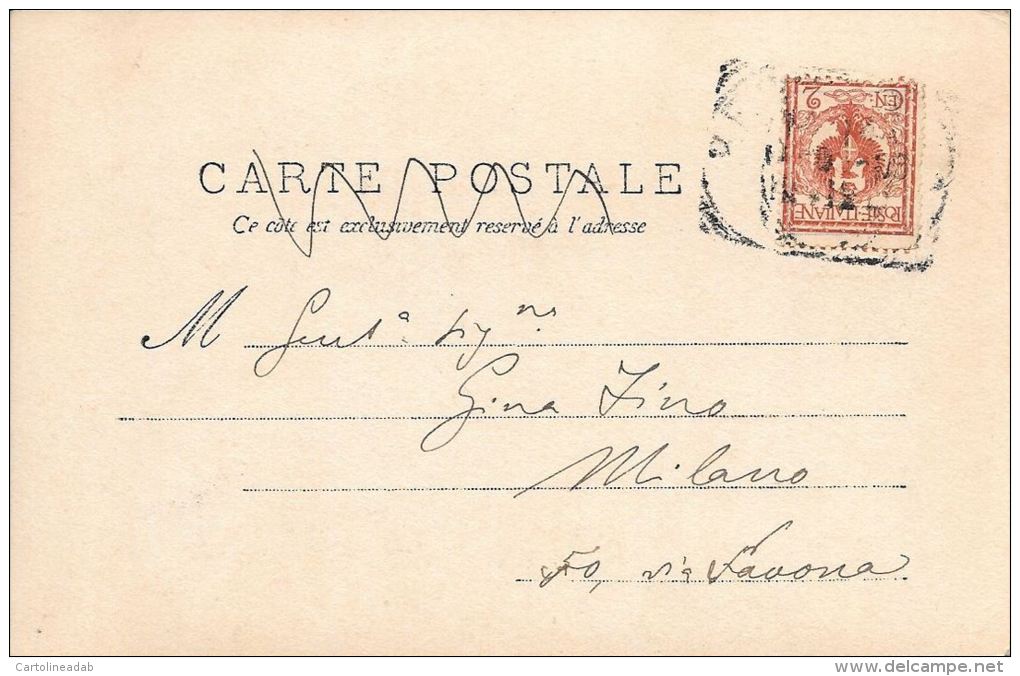 CARTE POSTALE
Ce côté est exclusivement reservé à l'adresse
CEN: 2
POSTE·ITALIANE
M Gent.ª Sig.na
Gina Fino
Milano
50, via Savona
Cartolineadab
www.delcampe.net